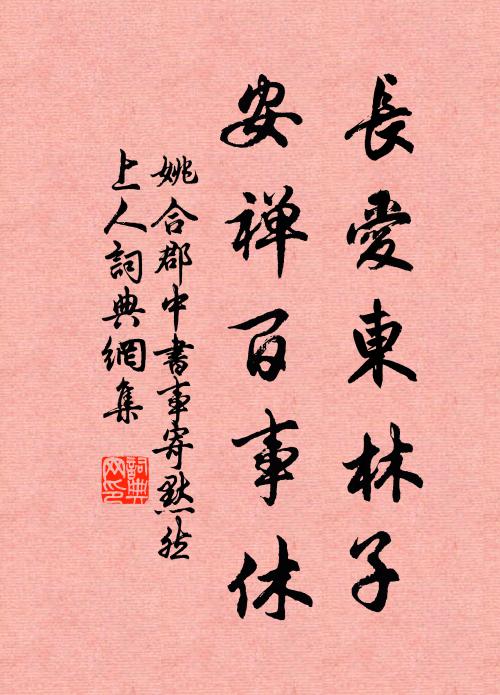 長愛東林子
安禅百事休
姚合郡中書事寄默然
上人詞典網集
詞典网印